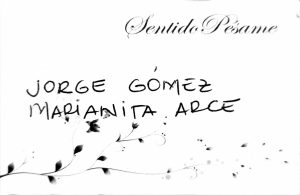 Sentido Pésame
JORGE GÓMEZ
MARIANITA ARCE